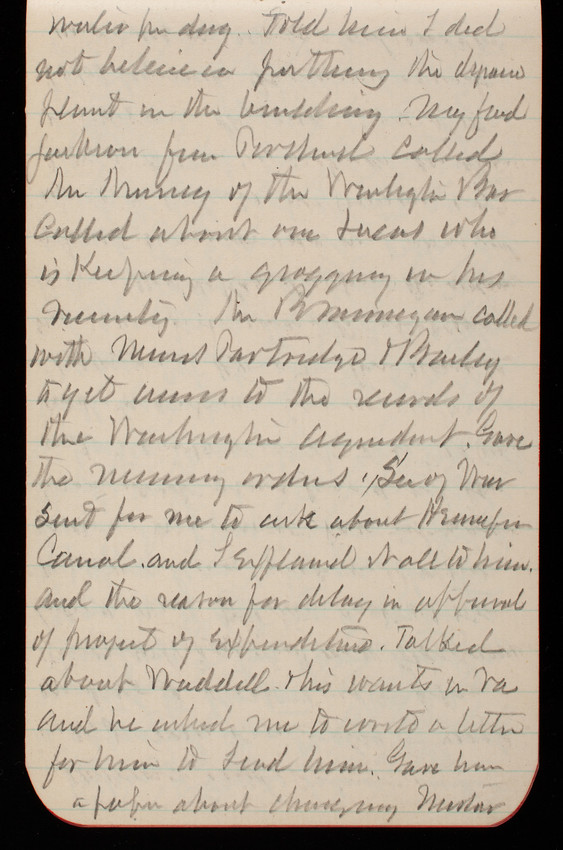 for day. Told him I did
not believe in putting the
plant in the building.
from Portland called
Mr of the Washington Bar
Called about one Lucas who
is Keeping a groggery in his
vicinity. Mr called
with Messrs Partridge & Bailey
to get access to the records of
the Washington aqueduct. Gave
the necessary orders. Secy War
sent for me to ask about Hennepin
Canal. and I explained it all to him.
and the reason for delay in approval
of project of expenditure. Talked
about Waddell & his wants in Va
and he asked me to write a letter
for him to send him. Gave him
a paper about changing